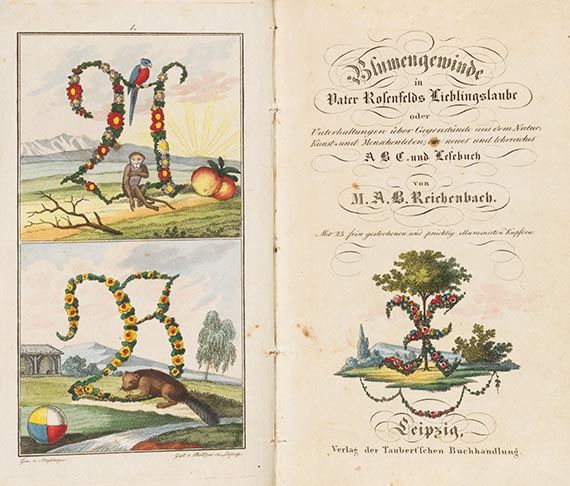 1.
A
B
Gez. v.
Gest. v. Böttger in Leipzig.
Blumengewinde
in
Vater Rosenfelds Lieblingslaube
oder
Unterhaltungen über Gegenstände aus dem Natur,
Kunst- und Menschenleben, ein neues und lehrreiches
A B C. und Lesebuch
von
M. A. B. Reichenbach.
Mit 25 fein gestochenen und prächtig illuminirten Kupfern.
Leipzig,
Verlag der Taubert'schen Buchhandlung.